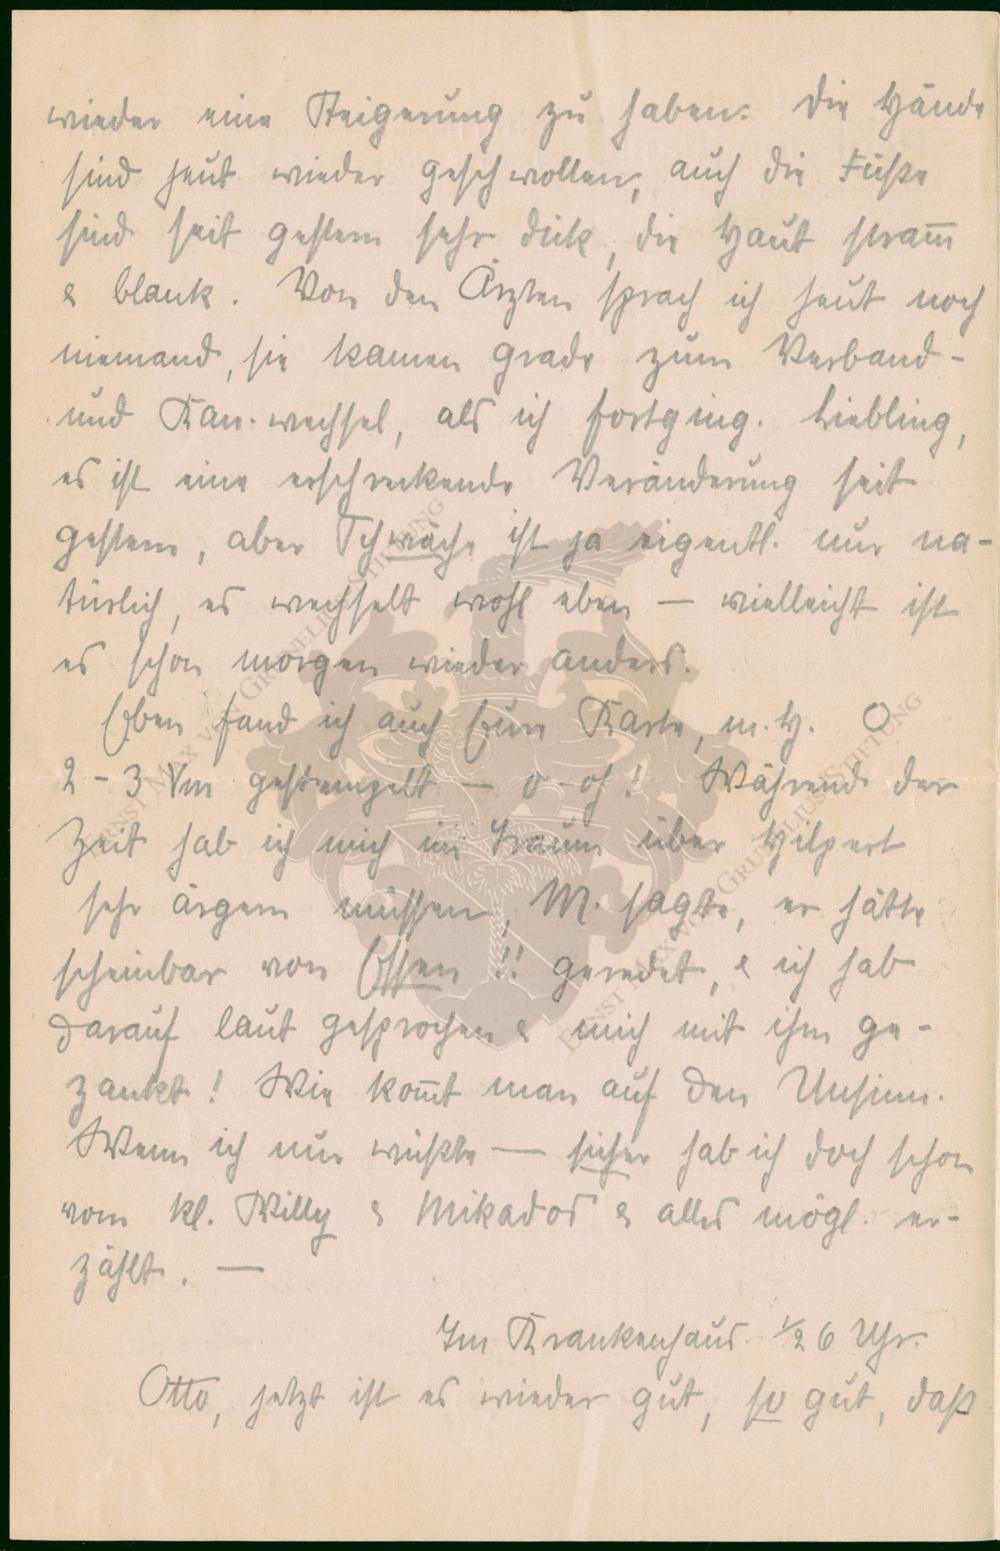 wieder eine Steigerung zu haben. Die Hände
sind heut wieder geschwollen, auch die Füße
sind seit gestern sehr dick, die Haut stram̅
& blank. Von den Ärzten sprach ich heut noch
niemand, sie kamen grade zum Verband-
und Kan. wechsel, als ich fortging. Liebling,
es ist eine erschreckende Veränderung seit
gestern, aber Schwäche ist ja eigentl. nur na-
türlich, es wechselt wohl eben — vielleicht ist
es schon morgen wieder anders.
Eben fand ich auch Eure Karte, m. H. O
2 – 3 Vm gestempelt — o–oh! Während der
Zeit hab ich mich im Traum über Hilpert
sehr ärgern müssen, M. sagte, er hätte
scheinbar von Essen!! geredet, & ich hab
darauf laut gesprochen & mich mit ihm ge-
zankt! Wie kom̅t man auf den Unsinn.
Wenn ich nur wüßte — sicher hab ich doch schon
vom kl. Willy & Mikados & alles mögl. er-
zählt. —
Im Krankenhaus ½ 6 Uhr.
Otto, jetzt ist es wieder gut, so gut, daß
ERNST MAX VON GRUNELIUS-STIFTUNG
ERNST MAX VON GRUNELIUS-STIFTUNG